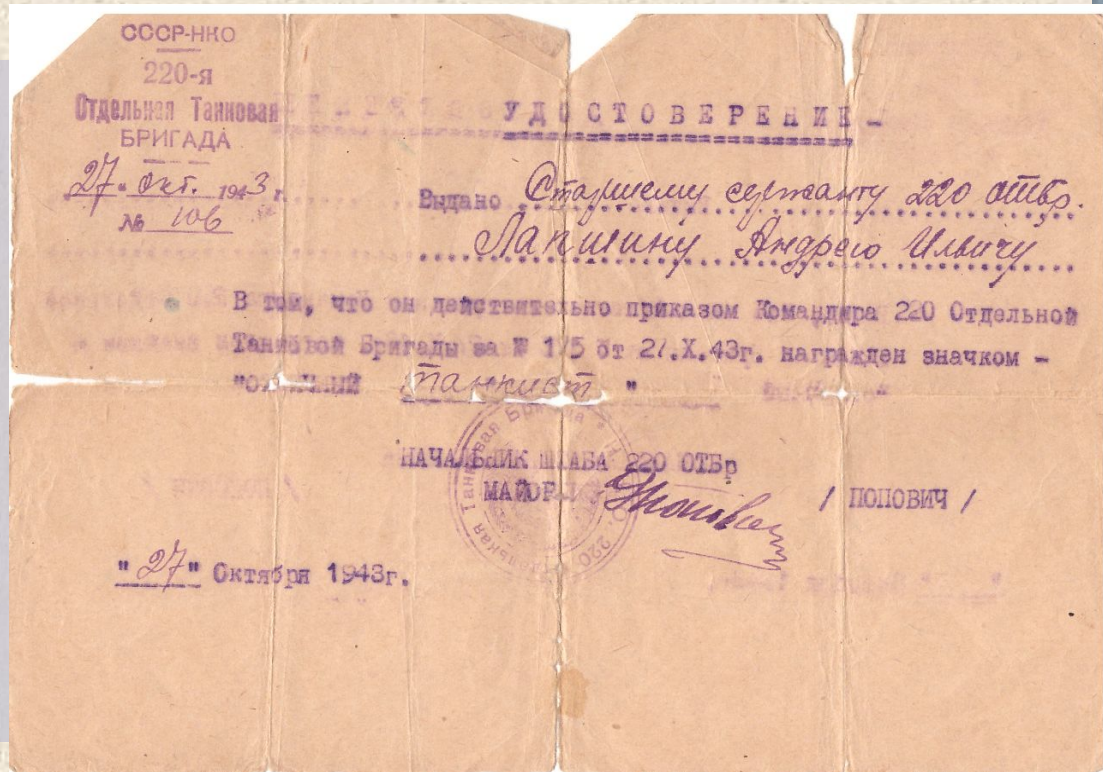 СССР-НКО
220-я
Отдельная Танковая
БРИГАДА
27 " Окт. 1943 г.
№ 106
УДОСТОВЕРЕНИЕ -
Выдано Старшему сержанту 220 отбр.
Лапшину Андрею Ильичу
В том, что он действительно приказом Командира 220 Отдельной
Танковой Бригады за № 175 от 27.X.43г. награжден значком -
"ОТЛИЧНЫЙ танкист "
НАЧАЛЬНИК ШТАБА 220 ОТБр
МАЙОР / ПОПОВИЧ /
"27" Октября 1943г.
Танковая Бригада 220